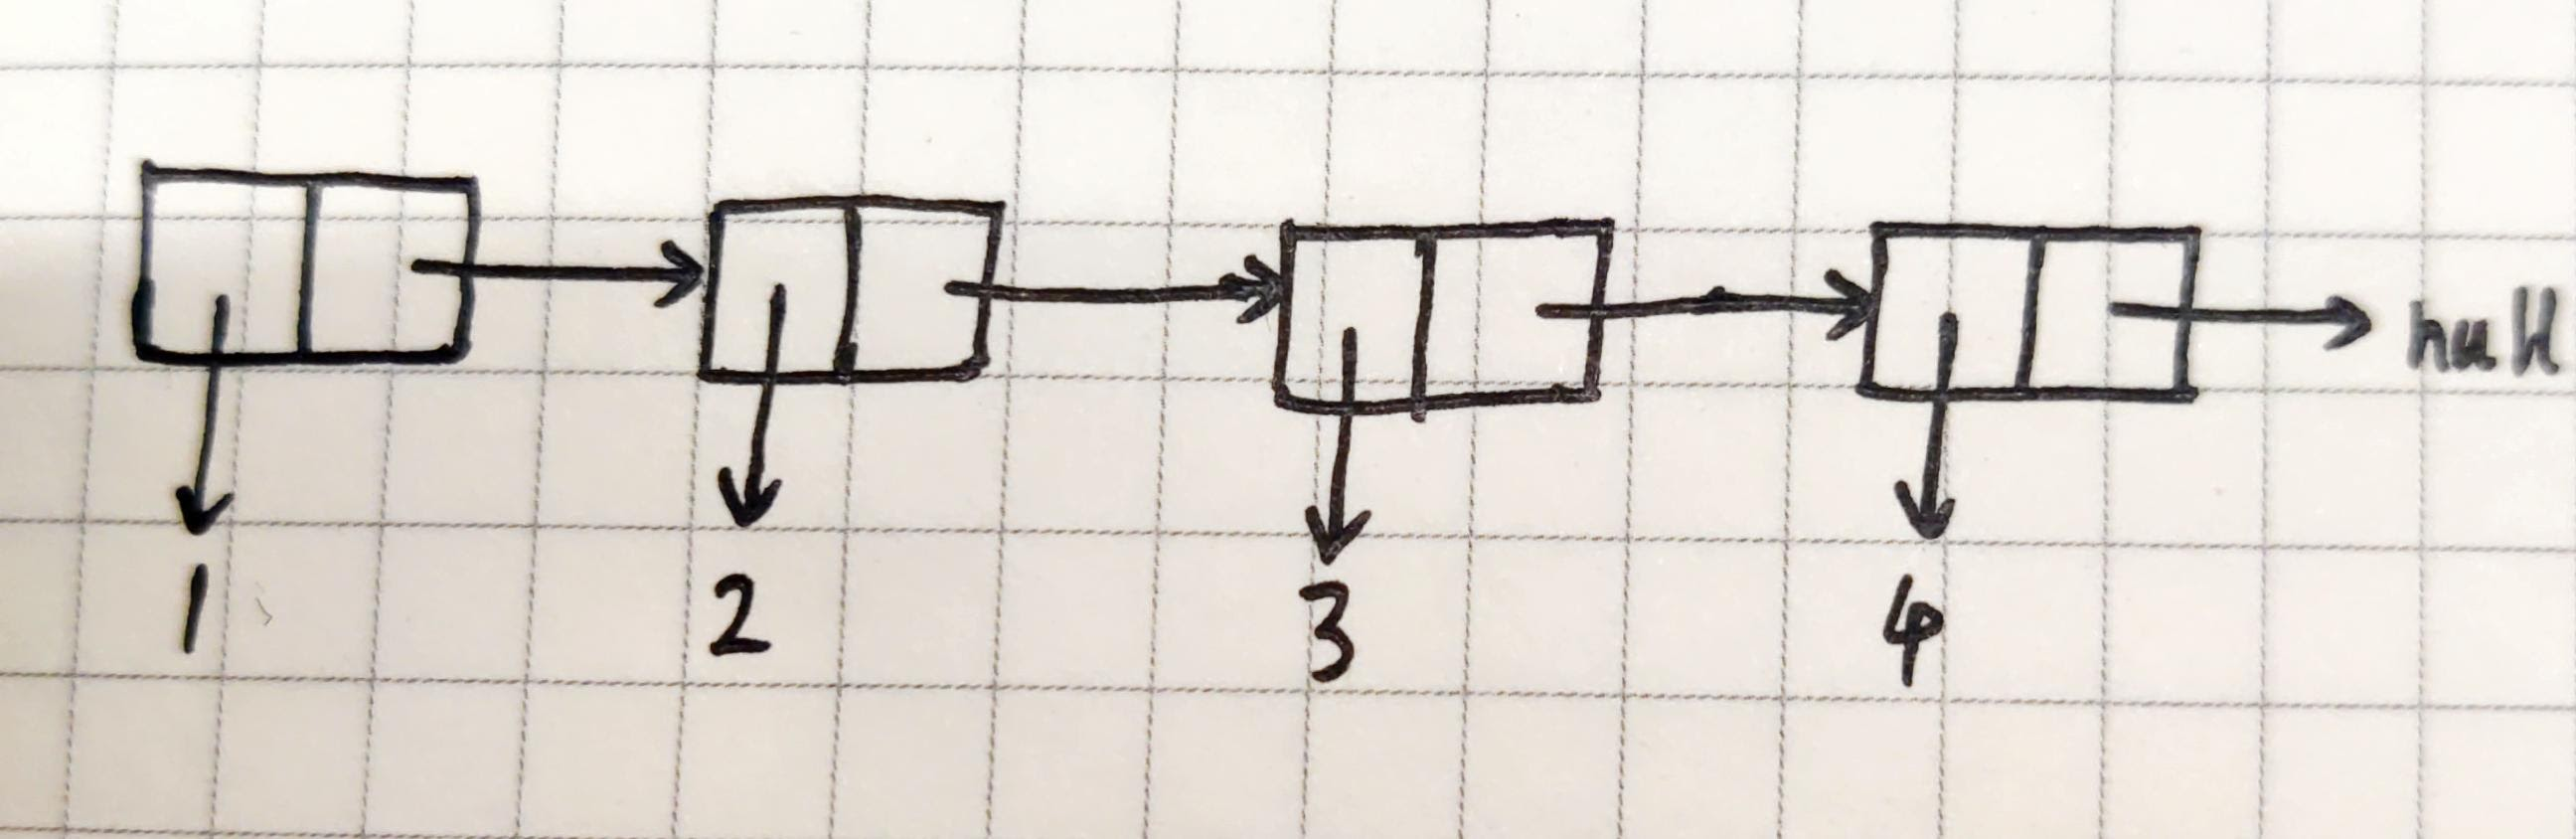 null
1 2 3 4